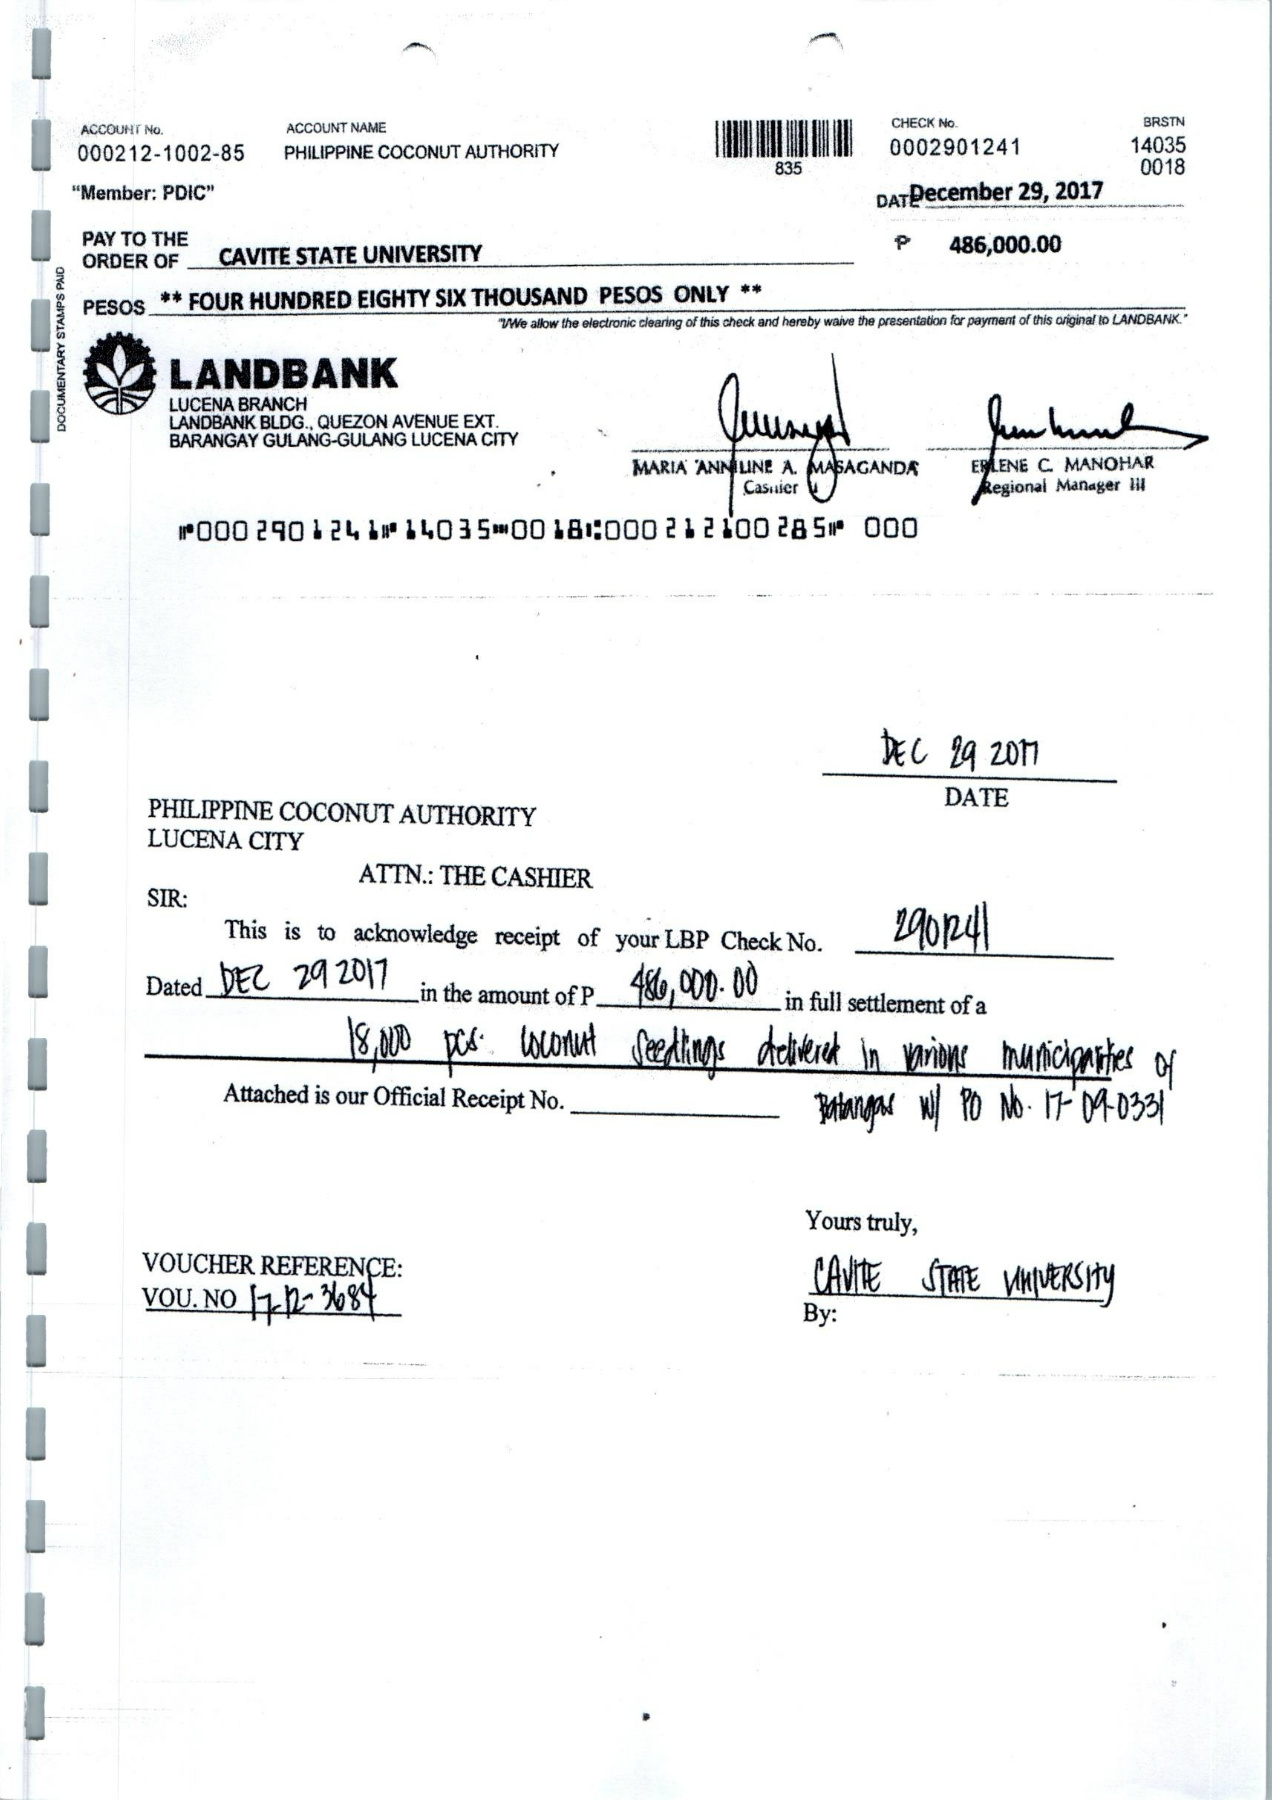 ACCOUNT No.
000212-1002-85
ACCOUNT NAME
PHILIPPINE COCONUT AUTHORITY
835
CHECK No.
0002901241
BRSTN
14035
0018
"Member: PDIC"
DATE December 29, 2017
PAY TO THE
ORDER OF CAVITE STATE UNIVERSITY
₱ 486,000.00
PESOS ** FOUR HUNDRED EIGHTY SIX THOUSAND PESOS ONLY **
"I/We allow the electronic clearing of this check and hereby waive the presentation for payment of this original to LANDBANK."
DOCUMENTARY STAMPS PAID
LANDBANK
LUCENA BRANCH
LANDBANK BLDG., QUEZON AVENUE EXT.
BARANGAY GULANG-GULANG LUCENA CITY
MARIA ANNILINE A. MASAGANDA
Cashier
ERLENE C. MANOHAR
Regional Manager III
⑈0002901241⑈14035⑉0018⑆000212100285⑈ 000
DEC 29 2017
DATE
PHILIPPINE COCONUT AUTHORITY
LUCENA CITY
ATTN.: THE CASHIER
SIR:
This is to acknowledge receipt of your LBP Check No. 2901241
Dated DEC 29 2017 in the amount of P 486,000.00 in full settlement of a
18,000 pcs. coconut seedlings delivered in various municipalities of
Attached is our Official Receipt No. Batangas w/ PO No. 17-09-0331
Yours truly,
VOUCHER REFERENCE:
VOU. NO 17-12-3684
CAVITE STATE UNIVERSITY
By: